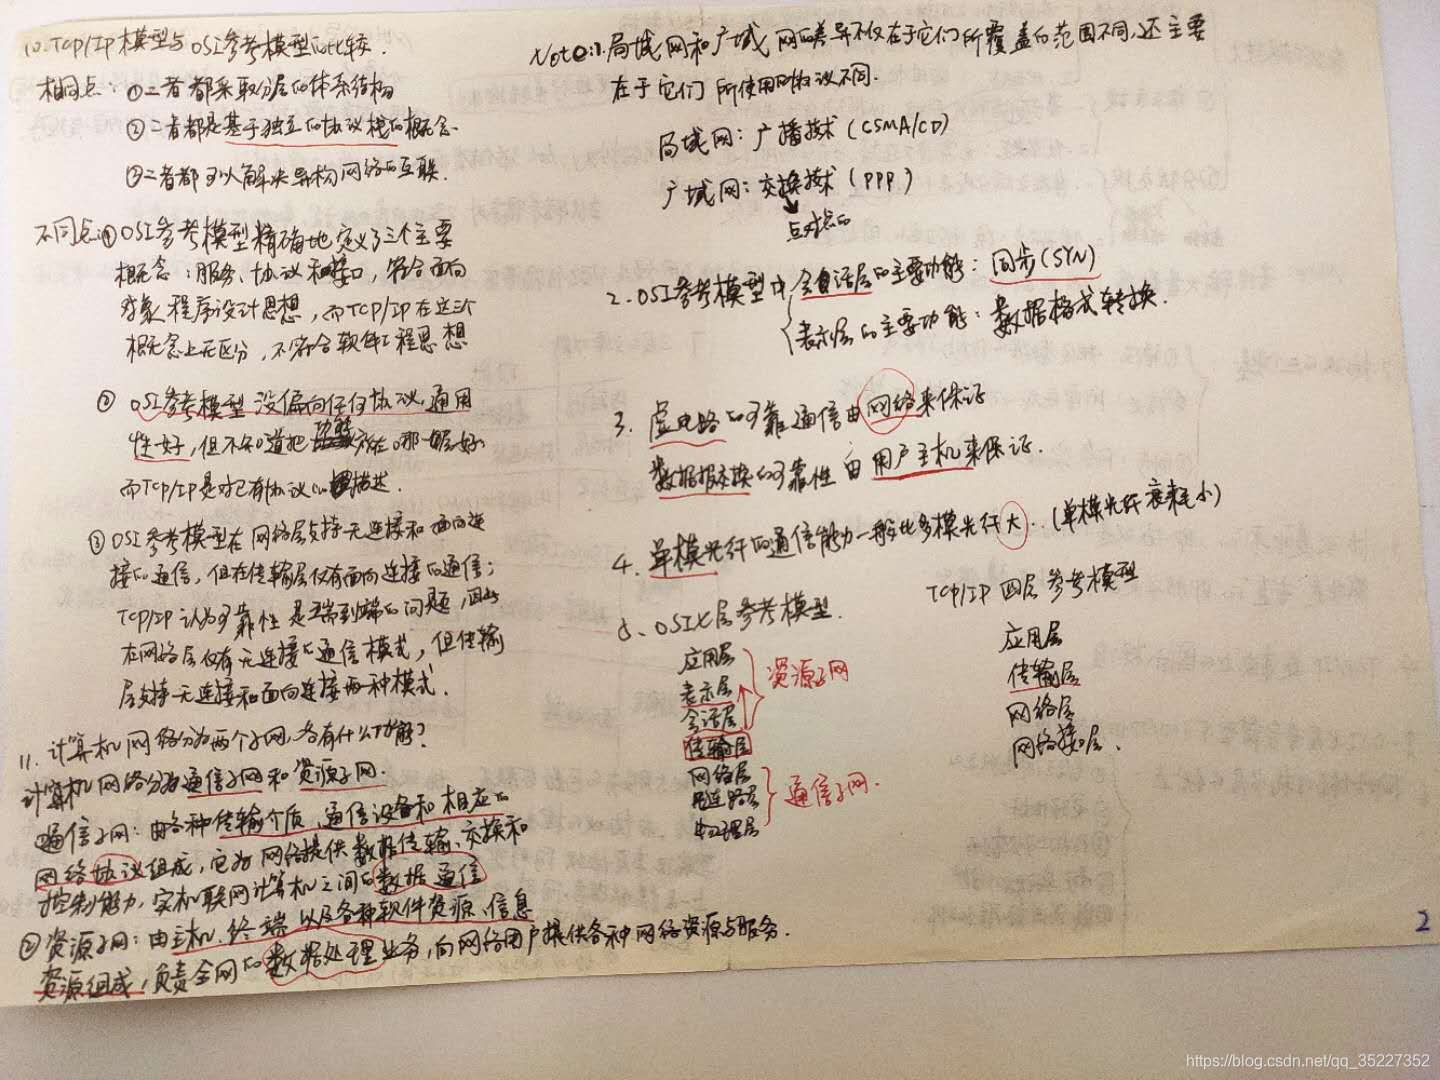 10. TCP/IP模型与OSI参考模型的比较.
相同点：①二者都采取分层的体系结构
②二者都是基于独立的协议栈的概念.
③二者都可以解决异构网络的互联.
不同点：①OSI参考模型精确地定义了三个主要
概念：服务、协议和接口，符合面向
对象程序设计思想，而TCP/IP在这三个
概念上无区分，不符合软件工程思想
② OSI参考模型没偏向任何协议，通用
性好，但不知道把 放在哪一层好
而TCP/IP是对已有协议的描述.
③ OSI参考模型在网络层支持无连接和面向连
接的通信，但在传输层仅有面向连接的通信；
TCP/IP认为可靠性是端到端的问题，因此
在网络层仅有无连接的通信模式，但传输
层支持无连接和面向连接两种模式.
11. 计算机网络分为两个子网，各有什么 ？
计算机网络分为通信子网和资源子网.
通信子网：由各种传输介质、通信设备和相应的
网络协议组成，它为网络提供数据传输、交换和
控制能力，实现联网计算机之间的数据通信
②资源子网：由主机、终端以及各种软件资源、信息
资源组成，负责全网的数据处理业务，向网络用户提供各种网络资源与服务.
Note:1.局域网和广域网的差异不仅在于它们所覆盖的范围不同，还主要
在于它们所使用的协议不同.
局域网：广播技术(CSMA/CD)
广域网：交换技术(PPP)
点对点的
2. OSI参考模型中会话层的主要功能：同步(SYN)
表示层的主要功能：数据格式转换.
3. 虚电路的可靠通信由网络来保证
数据报交换的可靠性由用户主机来保证.
4. 单模光纤的通信能力一般比多模光纤大.(单模光纤衰耗小)
5、OSI七层参考模型.
应用层
表示层
会话层
传输层
网络层
链路层
物理层
资源子网
通信子网.
TCP/IP四层参考模型
应用层
传输层
网络层
网络接口层.
2
https://blog.csdn.net/qq_35227352